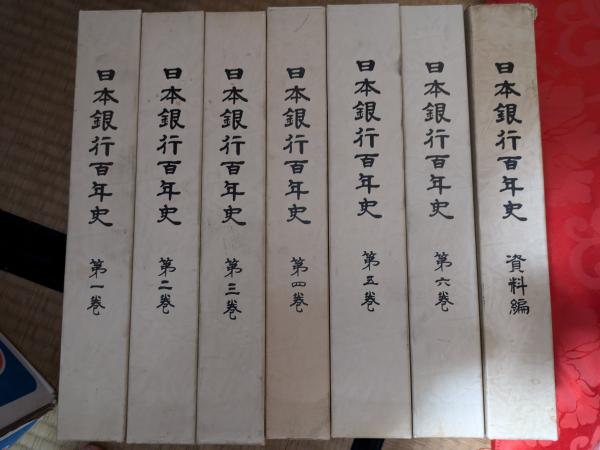 日本銀行百年史 第一巻
日本銀行百年史 第二巻
日本銀行百年史 第三巻
日本銀行百年史 第四巻
日本銀行百年史 第五巻
日本銀行百年史 第六巻
日本銀行百年史 資料編